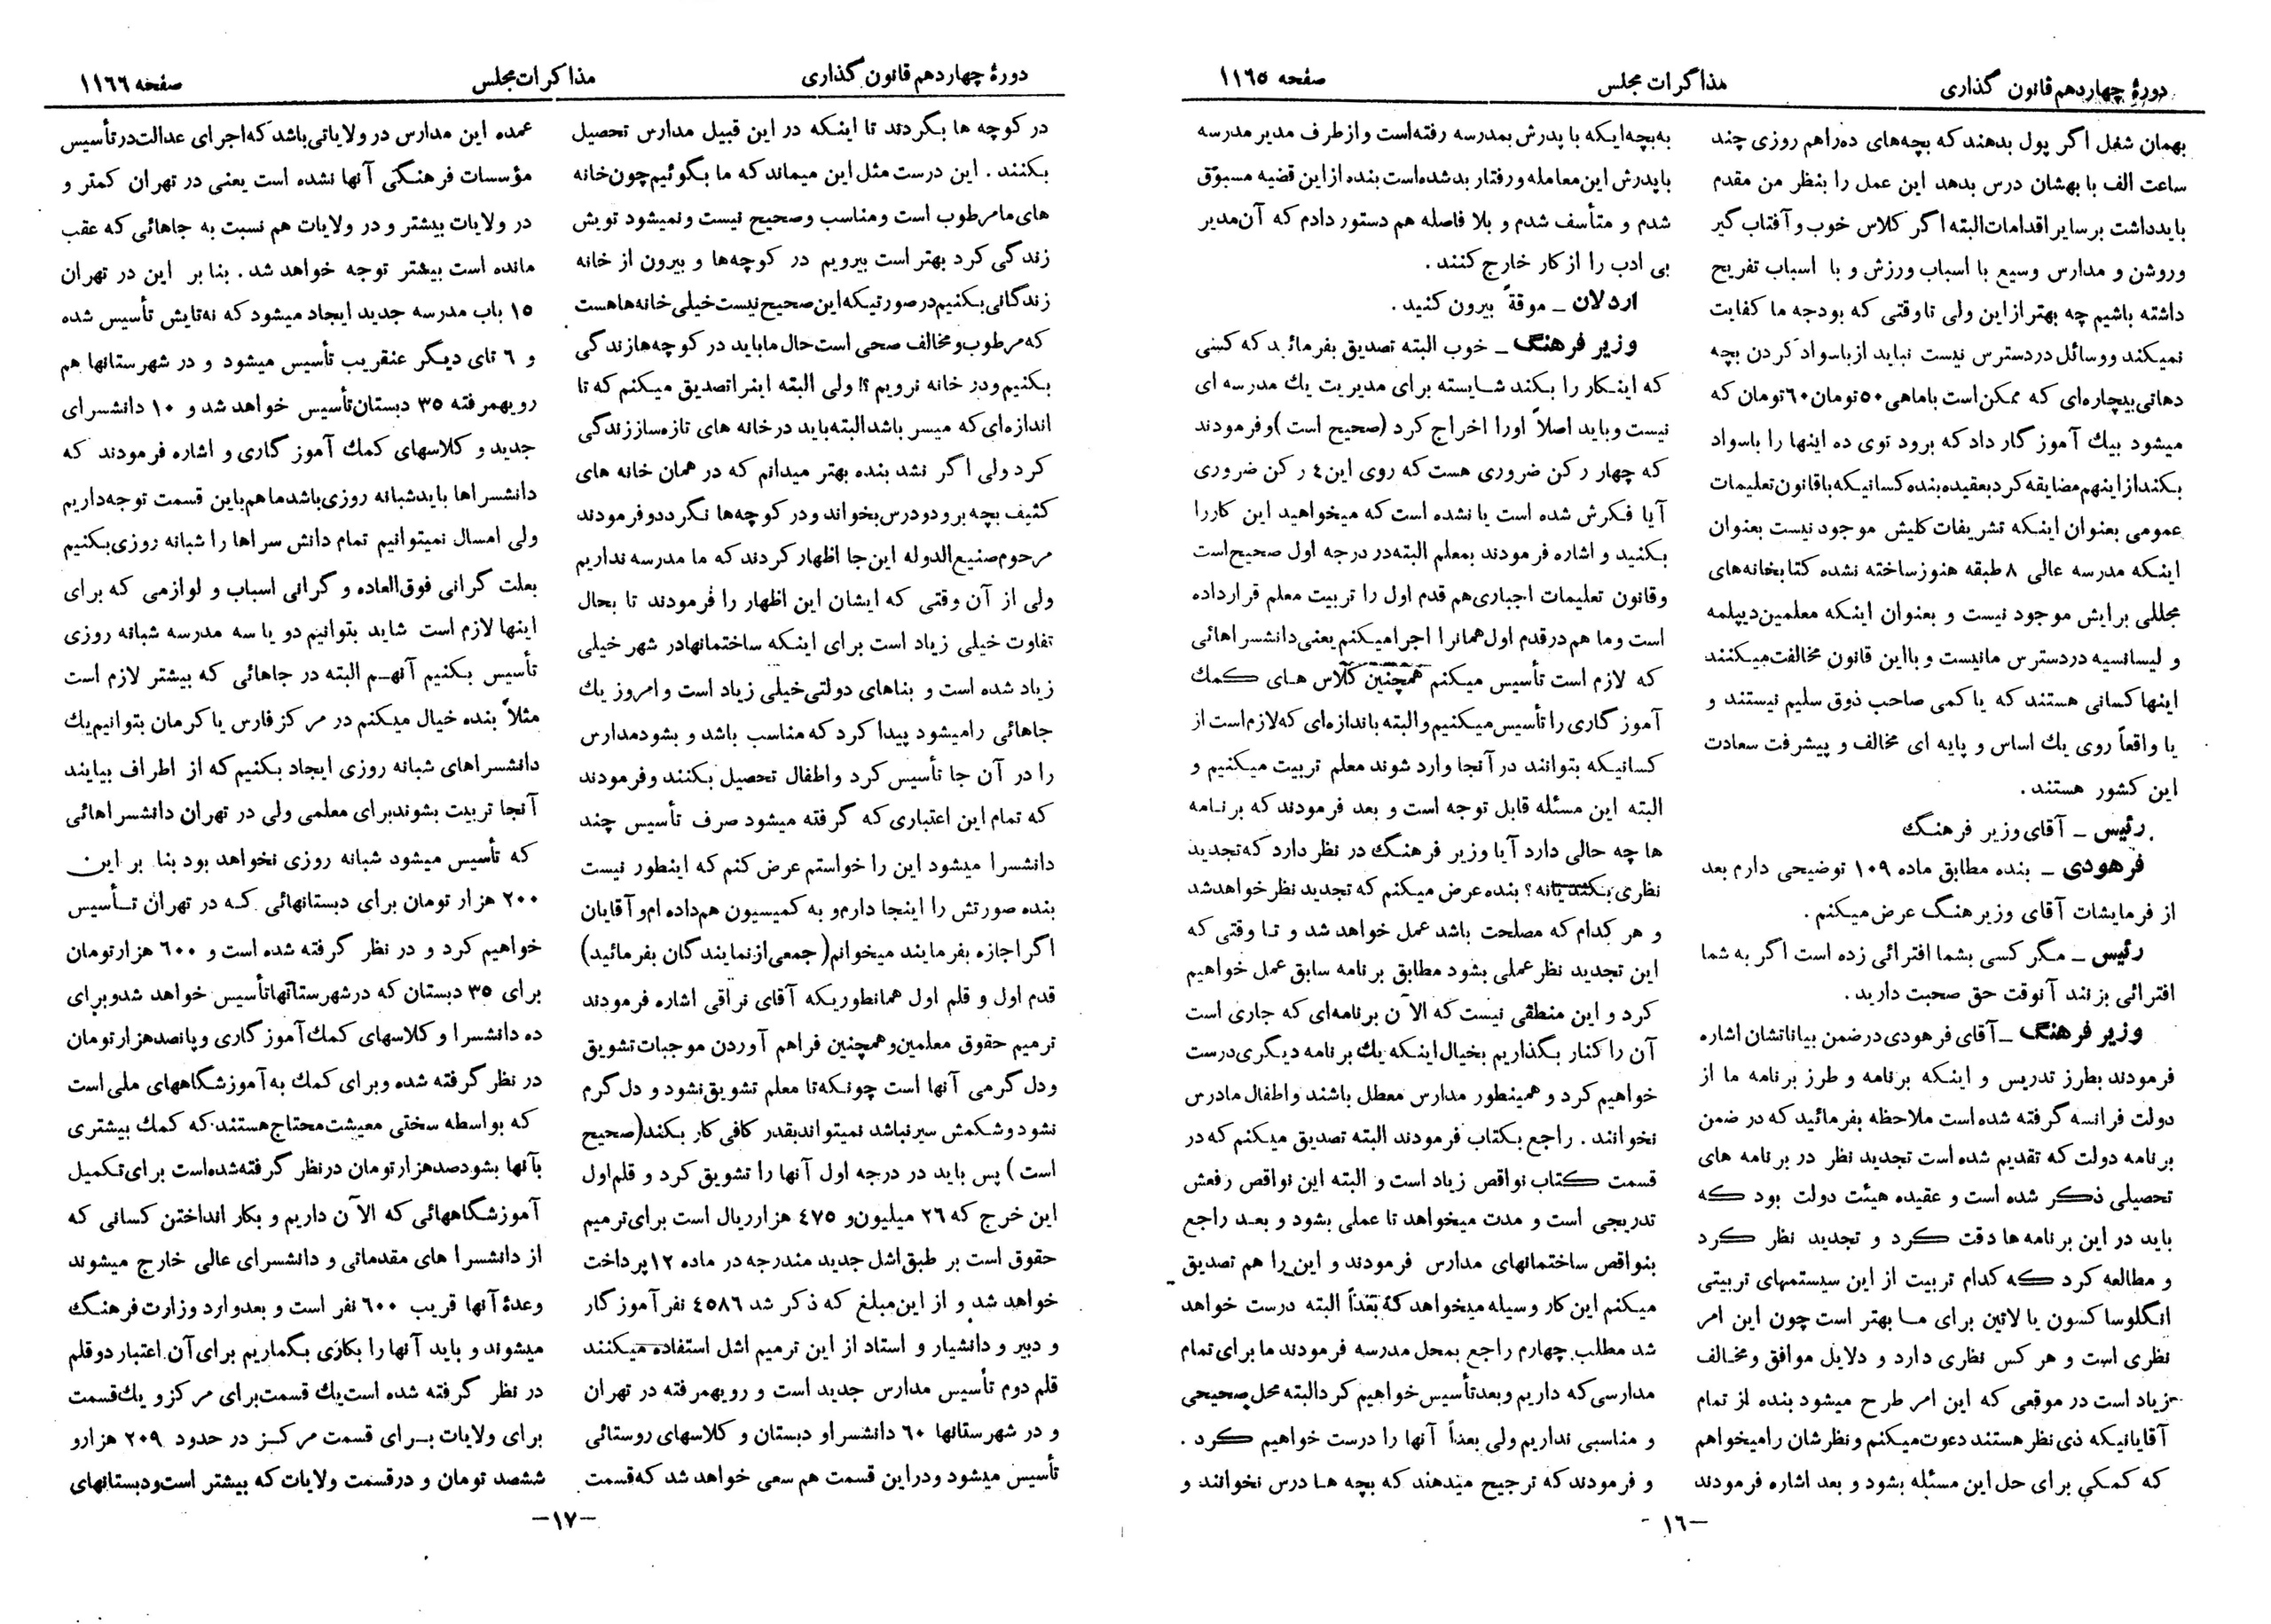 دورهٔ چهاردهم قانون گذاری
مذاکرات مجلس
صفحه ۱۱۶۵
بهمان شغل اگر پول بدهند که بچه‌های ده‌راهم روزی چند
ساعت الف با بهشان درس بدهد این عمل را بنظر من مقدم
بایدداشت برسایر اقدامات‌البته اگر کلاس خوب و آفتاب گیر
وروشن و مدارس وسیع با اسباب ورزش و با اسباب تفریح
داشته باشیم چه بهتر ازاین ولی تاوقتی که بودجه ما کفایت
نمیکند ووسائل دردسترس نیست نباید ازباسواد کردن بچه
دهاتی بیچاره‌ای که ممکن‌است باماهی ۵۰تومان ۶۰تومان که
میشود بیك آموز گار داد که برود توی ده اینها را باسواد
بکند از اینهم مضایقه کرد بعقیده بنده کسانیکه با قانون تعلیمات
عمومی بعنوان اینکه تشریفات کلیش موجود نیست بعنوان
اینکه مدرسه عالی ۸ طبقه هنوز ساخته نشده کتابخانه‌های
مجللی برایش موجود نیست و بعنوان اینکه معلمین‌دیپلمه
و لیسانسیه دردسترس مانیست و بااین قانون مخالفت‌میکنند
اینها کسانی هستند که یا کمی صاحب ذوق سلیم نیستند و
یا واقعاً روی یك اساس و پایه ای مخالف و پیشرفت سعادت
این کشور هستند .
رئیس – آقای وزیر فرهنگ
فرهودی – بنده مطابق ماده ۱۰۹ توضیحی دارم بعد
از فرمایشات آقای وزیرهنگ عرض میکنم .
رئیس – مگر کسی بشما افترائی زده است اگر به شما
افترائی بزنند آنوقت حق صحبت دارید .
وزیر فرهنگ – آقای فرهودی درضمن بیاناتشان اشاره
فرمودند بطرز تدریس و اینکه برنامه و طرز برنامه ما از
دولت فرانسه گرفته شده‌است ملاحظه بفرمائید که در ضمن
برنامه دولت که تقدیم شده است تجدید نظر در برنامه های
تحصیلی ذکر شده است و عقیده هیئت دولت بود که
باید در این برنامه‌ها دقت کرد و تجدید نظر کرد
و مطالعه کرد که کدام تربیت از این سیستمهای تربیتی
انگلوساکسون یا لاتین برای ما بهتر است چون این امر
نظری است و هر کس نظری دارد و دلایل موافق و مخالف
زیاد است در موقعی که این امر طرح میشود بنده از تمام
آقایانیکه ذی نظر هستند دعوت میکنم و نظرشان رامیخواهم
که کمکی برای حل این مسئله بشود و بعد اشاره فرمودند
به‌بچه‌ایکه با پدرش بمدرسه رفته‌است وازطرف مدیر مدرسه
با پدرش این معامله و رفتار بد شده‌است بنده ازاین قضیه مسبوق
شدم و متأسف شدم و بلا فاصله هم دستور دادم که آن مدیر
بی ادب را از کار خارج کنند .
اردلان – موقةً بیرون کنید .
وزیر فرهنگ – خوب البته تصدیق بفرمائید که کسی
که اینکار را بکند شایسته برای مدیریت یك مدرسه ای
نیست وباید اصلاً اورا اخراج کرد (صحیح است) وفرمودند
که چهار رکن ضروری هست که روی این ٤ رکن ضروری
آیا فکرش شده است یا نشده است که میخواهید این کاررا
بکنید و اشاره فرمودند بمعلم البته‌در درجه اول صحیح‌است
وقانون تعلیمات اجباری‌هم قدم اول را تربیت معلم قرارداده
است وما هم درقدم اول همانرا اجرامیکنم یعنی دانشسراهائی
که لازم است تأسیس میکنم همچنین کلاس های کمك
آموزگاری را تأسیس میکنیم والبته باندازه‌ای که لازم‌است از
کسانیکه بتوانند در آنجا وارد شوند معلم تربیت میکنیم و
البته این مسئله قابل توجه است و بعد فرمودند که برنامه
ها چه حالی دارد آیا وزیر فرهنگ در نظر دارد که‌تجدید
نظری بکند یانه؟ بنده عرض میکنم که تجدید نظر خواهدشد
و هر کدام که مصلحت باشد عمل خواهد شد و تا وقتی که
این تجدید نظر عملی بشود مطابق برنامه سابق عمل خواهیم
کرد و این منطقی نیست که الآن برنامه‌ای که جاری است
آن را کنار بگذاریم بخیال اینکه یك برنامه دیگری درست
خواهیم کرد و همینطور مدارس معطل باشند و اطفال مادرس
نخوانند . راجع بکتاب فرمودند البته تصدیق میکنم که در
قسمت کتاب نواقص زیاد است و البته این نواقص رفعش
تدریجی است و مدت میخواهد تا عملی بشود و بعد راجع
بنواقص ساختمانهای مدارس فرمودند و این را هم تصدیق
میکنم این کار وسیله میخواهد که بعداً البته درست خواهد
شد مطلب چهارم راجع بمحل مدرسه فرمودند ما برای تمام
مدارسی که داریم و بعد تأسیس خواهیم کرد البته محل صحیحی
و مناسبی نداریم ولی بعداً آنها را درست خواهیم کرد .
و فرمودند که ترجیح میدهند که بچه ها درس نخوانند و
–۱۶–
دورهٔ چهاردهم قانون گذاری
مذاکرات مجلس
صفحه ۱۱۶۶
در کوچه ها بگردند تا اینکه در این قبیل مدارس تحصیل
بکنند . این درست مثل این میماند که ما بگوئیم چون خانه
های مامرطوب است ومناسب وصحیح نیست ونمیشود تویش
زندگی کرد بهتر است بیرویم در کوچه‌ها و بیرون از خانه
زندگانی بکنیم درصورتیکه این صحیح نیست خیلی خانه‌هاهست
که مرطوب و مخالف صحی است حال ماباید در کوچه‌ها زندگی
بکنیم ودر خانه نرویم ؟! ولی البته اینرا تصدیق میکنم که تا
اندازه‌ای که میسر باشد البته باید درخانه های تازه‌ساز زندگی
کرد ولی اگر نشد بنده بهتر میدانم که در همان خانه های
کثیف بچه برود و درس بخواند و در کوچه‌ها نگردد و فرمودند
مرحوم صنیع‌الدوله این‌جا اظهار کردند که ما مدرسه نداریم
ولی از آن وقتی که ایشان این اظهار را فرمودند تا بحال
تفاوت خیلی زیاد است برای اینکه ساختمانها در شهر خیلی
زیاد شده است و بناهای دولتی خیلی زیاد است و امروز یك
جاهائی رامیشود پیدا کرد که مناسب باشد و بشود مدارس
را در آن جا تأسیس کرد و اطفال تحصیل بکنند و فرمودند
که تمام این اعتباری که گرفته میشود صرف تأسیس چند
دانشسرا میشود این را خواستم عرض کنم که اینطور نیست
بنده صورتش را اینجا دارم و به کمیسیون هم داده ام و آقایان
اگر اجازه بفرمایند میخوانم( جمعی از نمایندگان بفرمائید)
قدم اول و قلم اول همانطوریکه آقای نراقی اشاره فرمودند
ترمیم حقوق معلمین و همچنین فراهم آوردن موجبات تشویق
ودل گرمی آنها است چونکه تا معلم تشویق نشود و دل گرم
نشود وشکمش سیر نباشد نمیتواند بقدر کافی کار بکند(صحیح
است) پس باید در درجه اول آنها را تشویق کرد و قلم اول
این خرج که ۲۶ میلیون و ٤۷۵ هزارریال است برای ترمیم
حقوق است بر طبق اشل جدید مندرجه در ماده ۱۲ پرداخت
خواهد شد و از این مبلغ که ذکر شد ٤۵۸۶ نفر آموزگار
و دبیر و دانشیار و استاد از این ترمیم اشل استفاده میکنند
قلم دوم تأسیس مدارس جدید است و رویهمرفته در تهران
و در شهرستانها ۶۰ دانشسرا و دبستان و کلاسهای روستائی
تأسیس میشود و در این قسمت هم سعی خواهد شد که قسمت
عمده این مدارس در ولایاتی باشد که اجرای عدالت در تأسیس
مؤسسات فرهنگی آنها نشده است یعنی در تهران کمتر و
در ولایات بیشتر و در ولایات هم نسبت به جاهائی که عقب
مانده است بیشتر توجه خواهد شد . بنا بر این در تهران
۱۵ باب مدرسه جدید ایجاد میشود که نه‌تایش تأسیس شده
و ۶ تای دیگر عنقریب تأسیس میشود و در شهرستانها هم
رویهمرفته ۳۵ دبستان تأسیس خواهد شد و ۱۰ دانشسرای
جدید و کلاسهای کمك آموزگاری و اشاره فرمودند که
دانشسراها باید شبانه روزی باشد ما هم باین قسمت توجه داریم
ولی امسال نمیتوانیم تمام دانش سراها را شبانه روزی بکنیم
بعلت گرانی فوق‌العاده و گرانی اسباب و لوازمی که برای
اینها لازم است شاید بتوانیم دو یا سه مدرسه شبانه روزی
تأسیس بکنیم آنهم البته در جاهائی که بیشتر لازم است
مثلاً بنده خیال میکنم در مرکز فارس یا کرمان بتوانیم یك
دانشسراهای شبانه روزی ایجاد بکنیم که از اطراف بیایند
آنجا تربیت بشوند برای معلمی ولی در تهران دانشسراهائی
که تأسیس میشود شبانه روزی نخواهد بود بنا بر این
۲۰۰ هزار تومان برای دبستانهائی که در تهران تأسیس
خواهیم کرد و در نظر گرفته شده است و ۶۰۰ هزارتومان
برای ۳۵ دبستان که در شهرستانها تأسیس خواهد شد و برای
ده دانشسرا و کلاسهای کمك آموزگاری و پانصد هزار تومان
در نظر گرفته شده و برای کمك به آموزشگاههای ملی است
که بواسطه سختی معیشت محتاج هستند که کمك بیشتری
بآنها بشود صد هزار تومان در نظر گرفته شده است برای تکمیل
آموزشگاههائی که الآن داریم و بکار انداختن کسانی که
از دانشسرا های مقدماتی و دانشسرای عالی خارج میشوند
وعدهٔ آنها قریب ۶۰۰ نفر است و بعد وارد وزارت فرهنگ
میشوند و باید آنها را بکاری بگماریم برای آن اعتبار دو قلم
در نظر گرفته شده است یك قسمت برای مرکز و یك قسمت
برای ولایات برای قسمت مرکز در حدود ۲۰۹ هزار و
ششصد تومان و در قسمت ولایات که بیشتر است و دبستانهای
–۱۷–